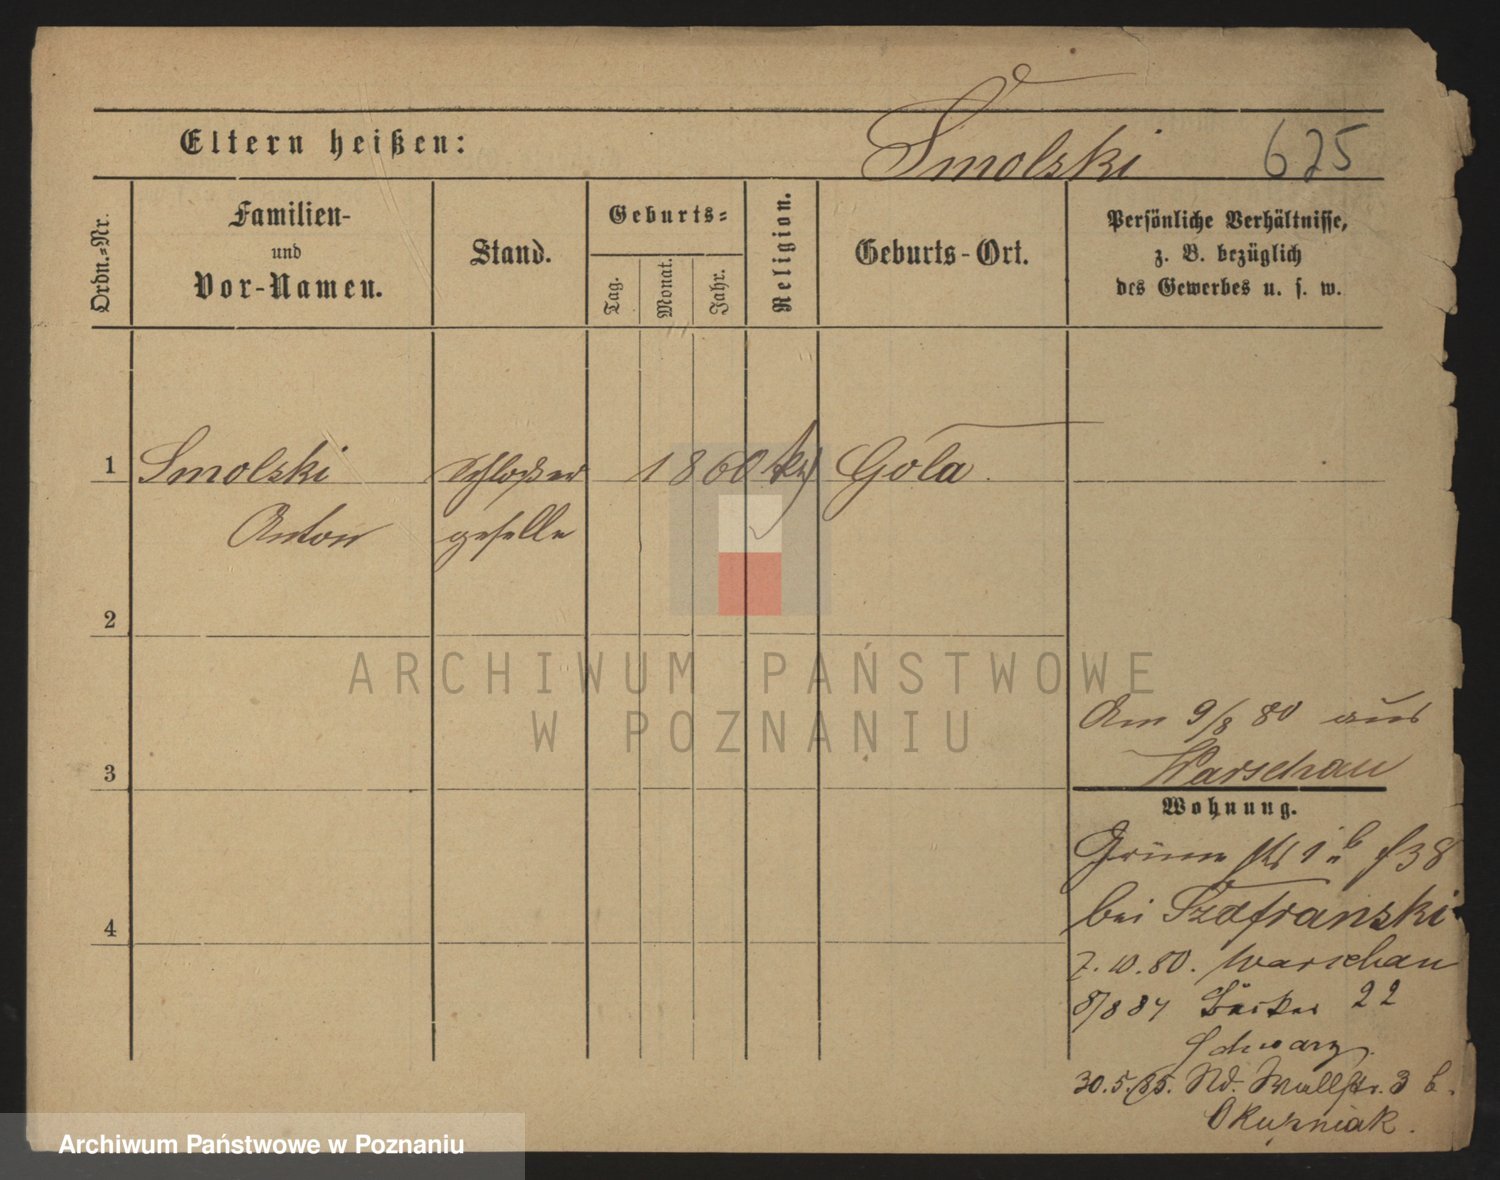 Eltern heißen:
Smolski 625
Ordn.=Nr.
Familien-
und
Vor-Namen.
Stand.
Geburts=
Tag.
Monat.
Jahr.
Religion.
Geburts-Ort.
Persönliche Verhältnisse,
z. B. bezüglich
des Gewerbes u. s. w.
1 Smolski Schlosser 1860 Gola
Anton geselle
2
3
4
ARCHIWUM PAŃSTWOWE
W POZNANIU
Am 9/8 80 aus
Warschau
Wohnung.
bei Szafranski
7.10.80. Warschau
8/8 84 Bäcker 22
Schwarz
30.5.85. Nd. Wallstr. 3 b.
Okupniak.
Archiwum Państwowe w Poznaniu